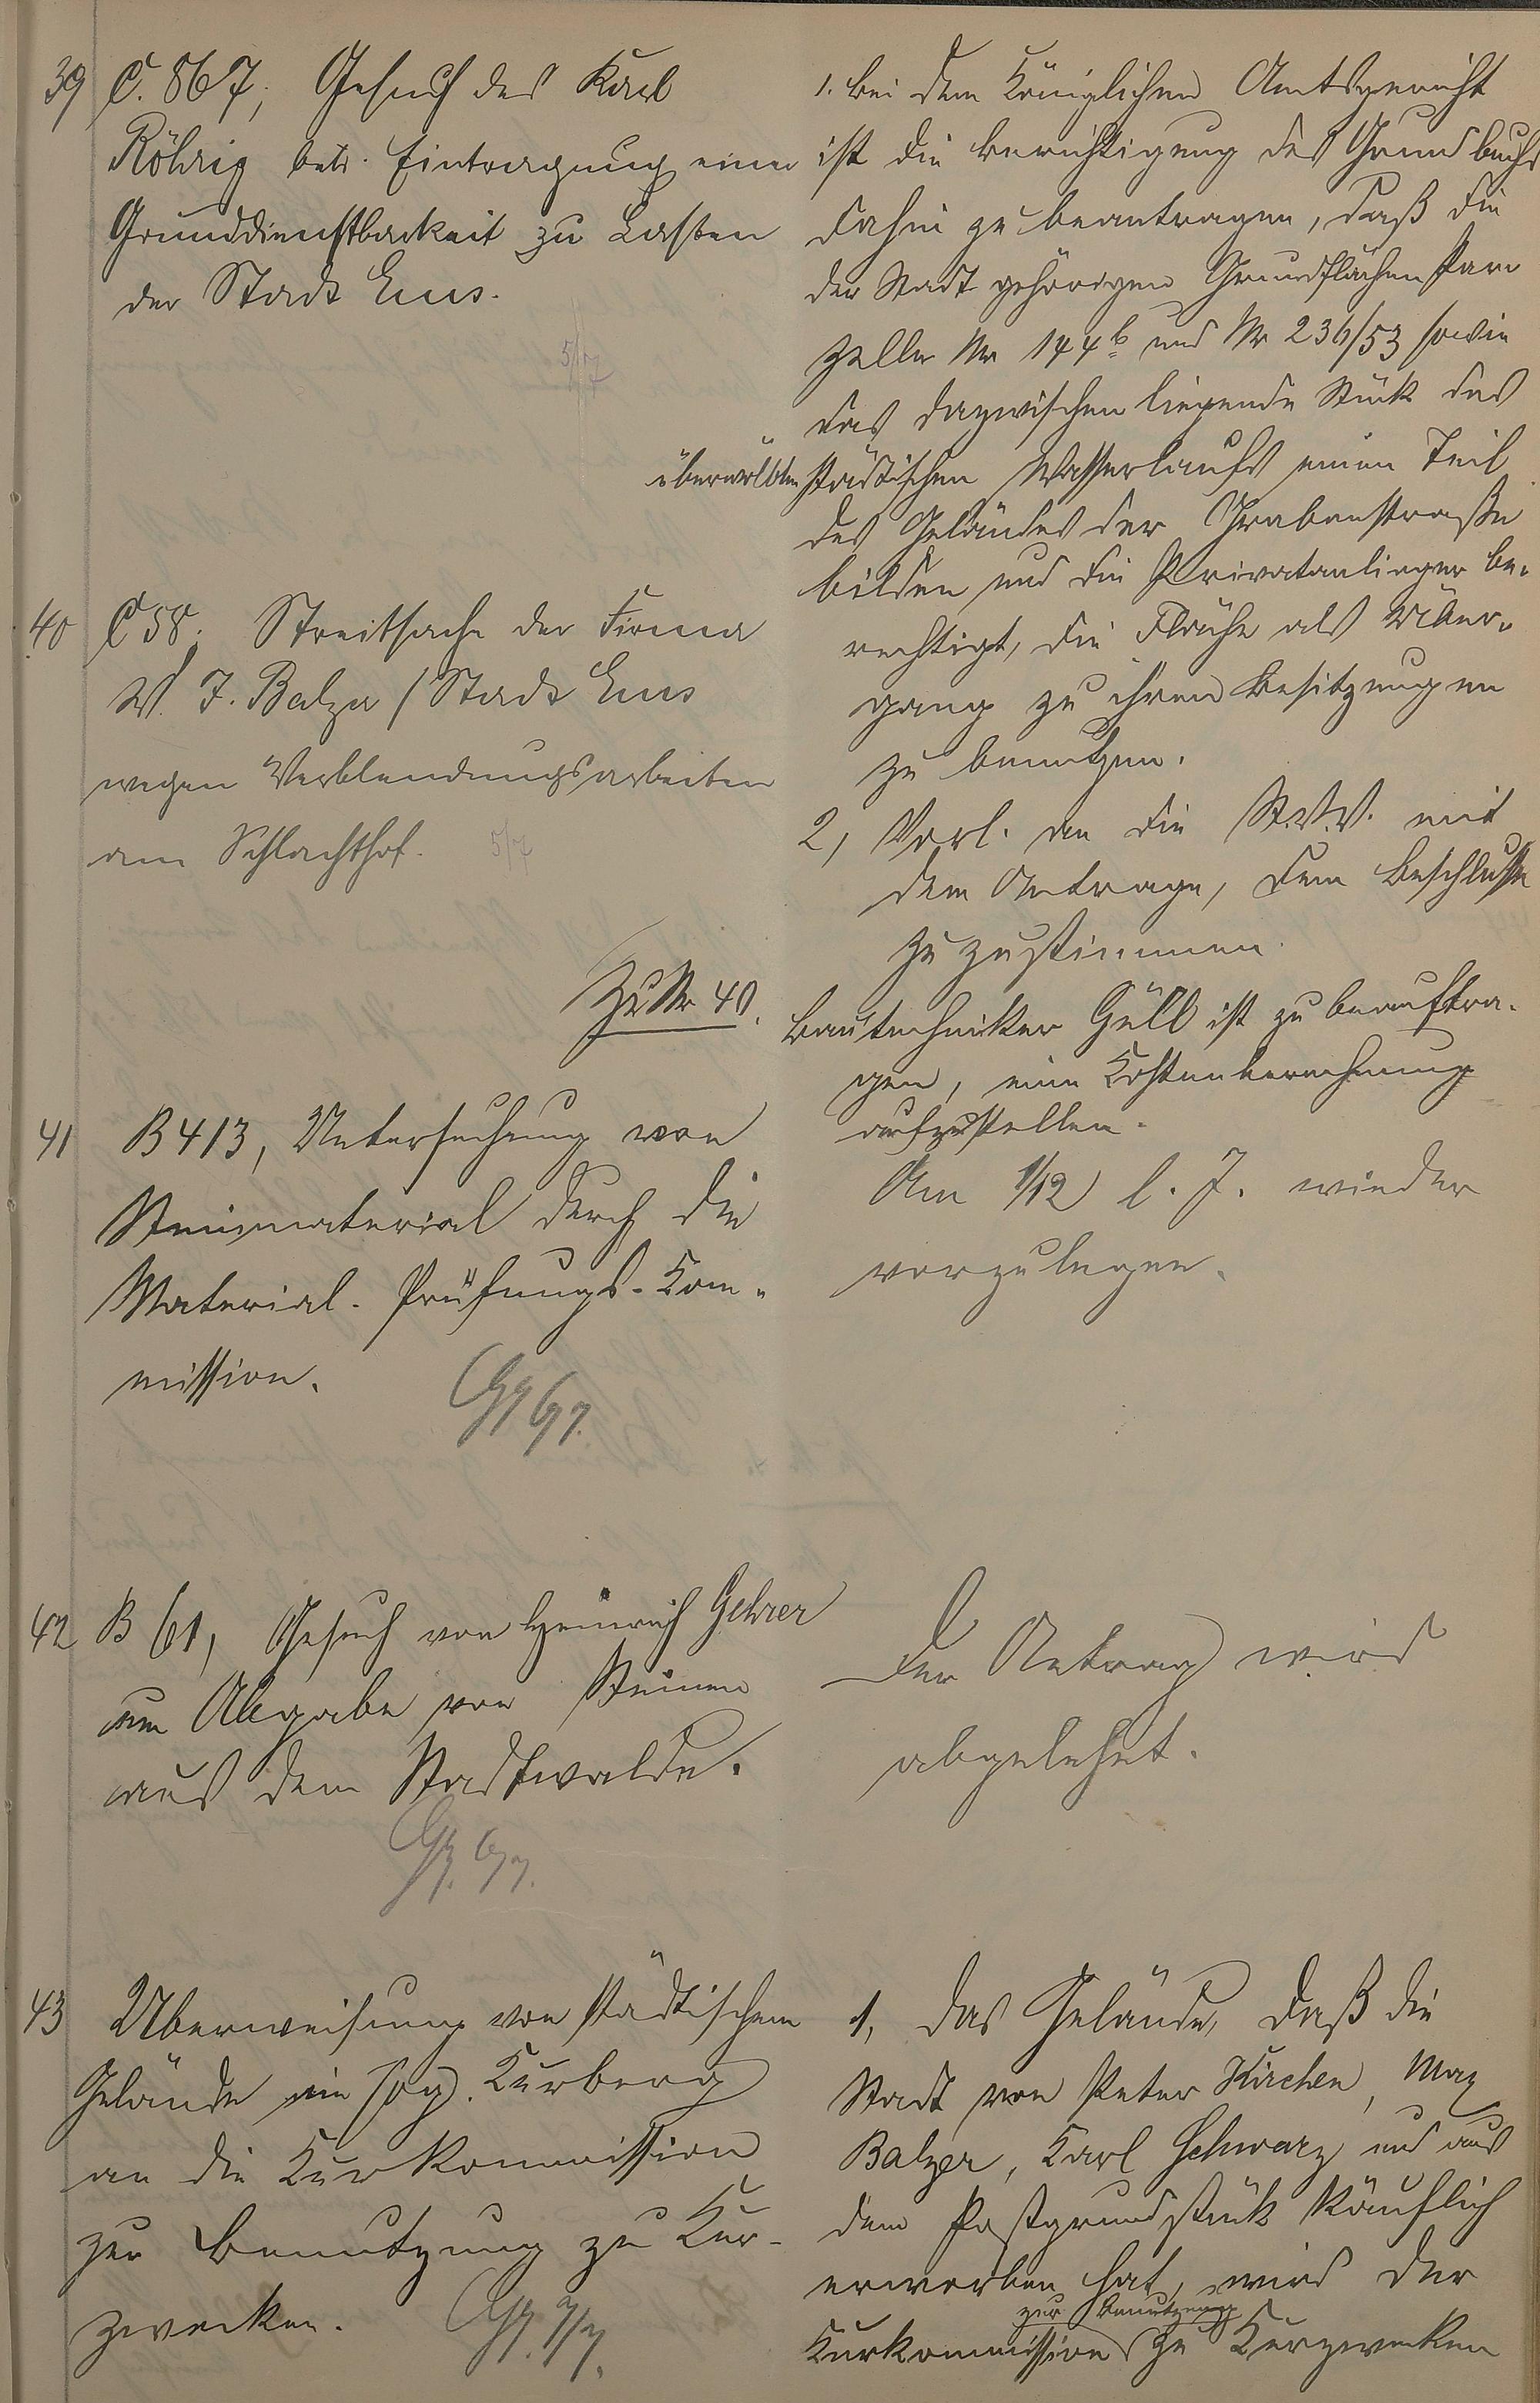 39 C. 867, Gesuch des Karl
Röhrig betr. Eintragung einer
Grunddienstbarkeit zu Lasten
der Stadt Ems.
5/7
1. Bei dem Königlichen Amtsgericht
ist die Berichtigung des Grundbuchs
dahin zu beantragen, daß die
der Stadt gehörigen Grundflächen Par
zelle Nr 144b und Nr 236/53 sowie
das dazwischen liegende Stück des
überwölbten städtischen Wasserlaufs einen Teil
des Geländes der Grabenstraße
bilden und die Privatanlieger be-
rechtigt, die Fläche als Über-
gang zu ihren Besitzungen
zu benutzen.
2, Vorl. an die St.V.V. mit
dem Antrage, dem Beschlusse
zuzustimmen.
40 C 58. Streitsache der Firma
W. J. Balzer / Stadt Ems
wegen Verblendungsarbeiten
am Schlachthof.
5/7
Zu Nr 40.
Bautechniker Güll ist zu beauftra-
gen, eine Kostenberechnung
aufzustellen.
41 B 413, Untersuchung von
Steinmaterial durch die
Material-Prüfungs-Kom-
mission.
6/7.
Am 1/12 l. J. wieder
vorzulegen.
42 B 61, Gesuch von Heinrich Gehrer
um Abgabe von Steinen
aus dem Stadtwalde.
6/7.
Der Antrag wird
abgelehnt.
43 Überweisung von städtischem
Gelände im sog. Kurberg
an die Kurkommission
zur Benutzung zu Kur-
zwecken.
7/7.
1, Das Gelände, daß die
Stadt von Peter Kirchen, Max
Balzer, Karl Schwarz und aus
dem Postgrundstück käuflich
erworben hat, wird der
zur Benutzung
Kurkommission zu Kurzwecken